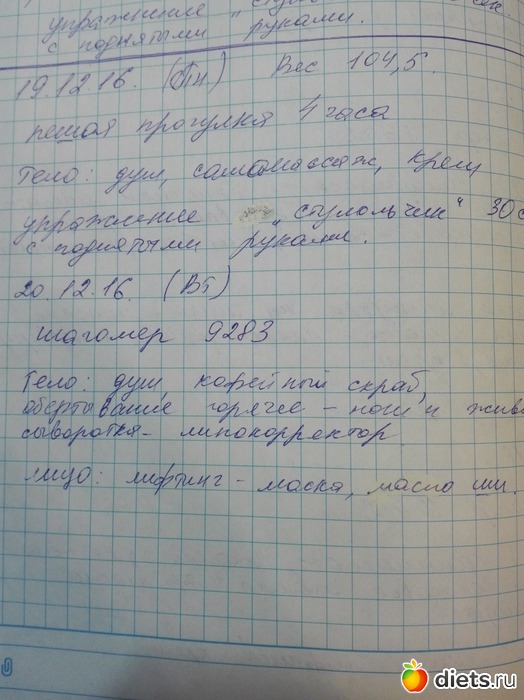 упражнение „стуль сек.
с поднятыми руками.
19.12.16. (Пн) Вес 104,5.
пешая прогулка 4 часа
Тело: душ, самомассаж, крем
упражнение „стульчик" 30 с
с поднятыми руками.
20.12.16. (Вт)
шагомер 9283
Тело: душ, кофейный скраб,
обертывание горячее - ноги и жив
сыворотка - липокорректор
лицо: лифтинг - маска, масло ши.
diets.ru